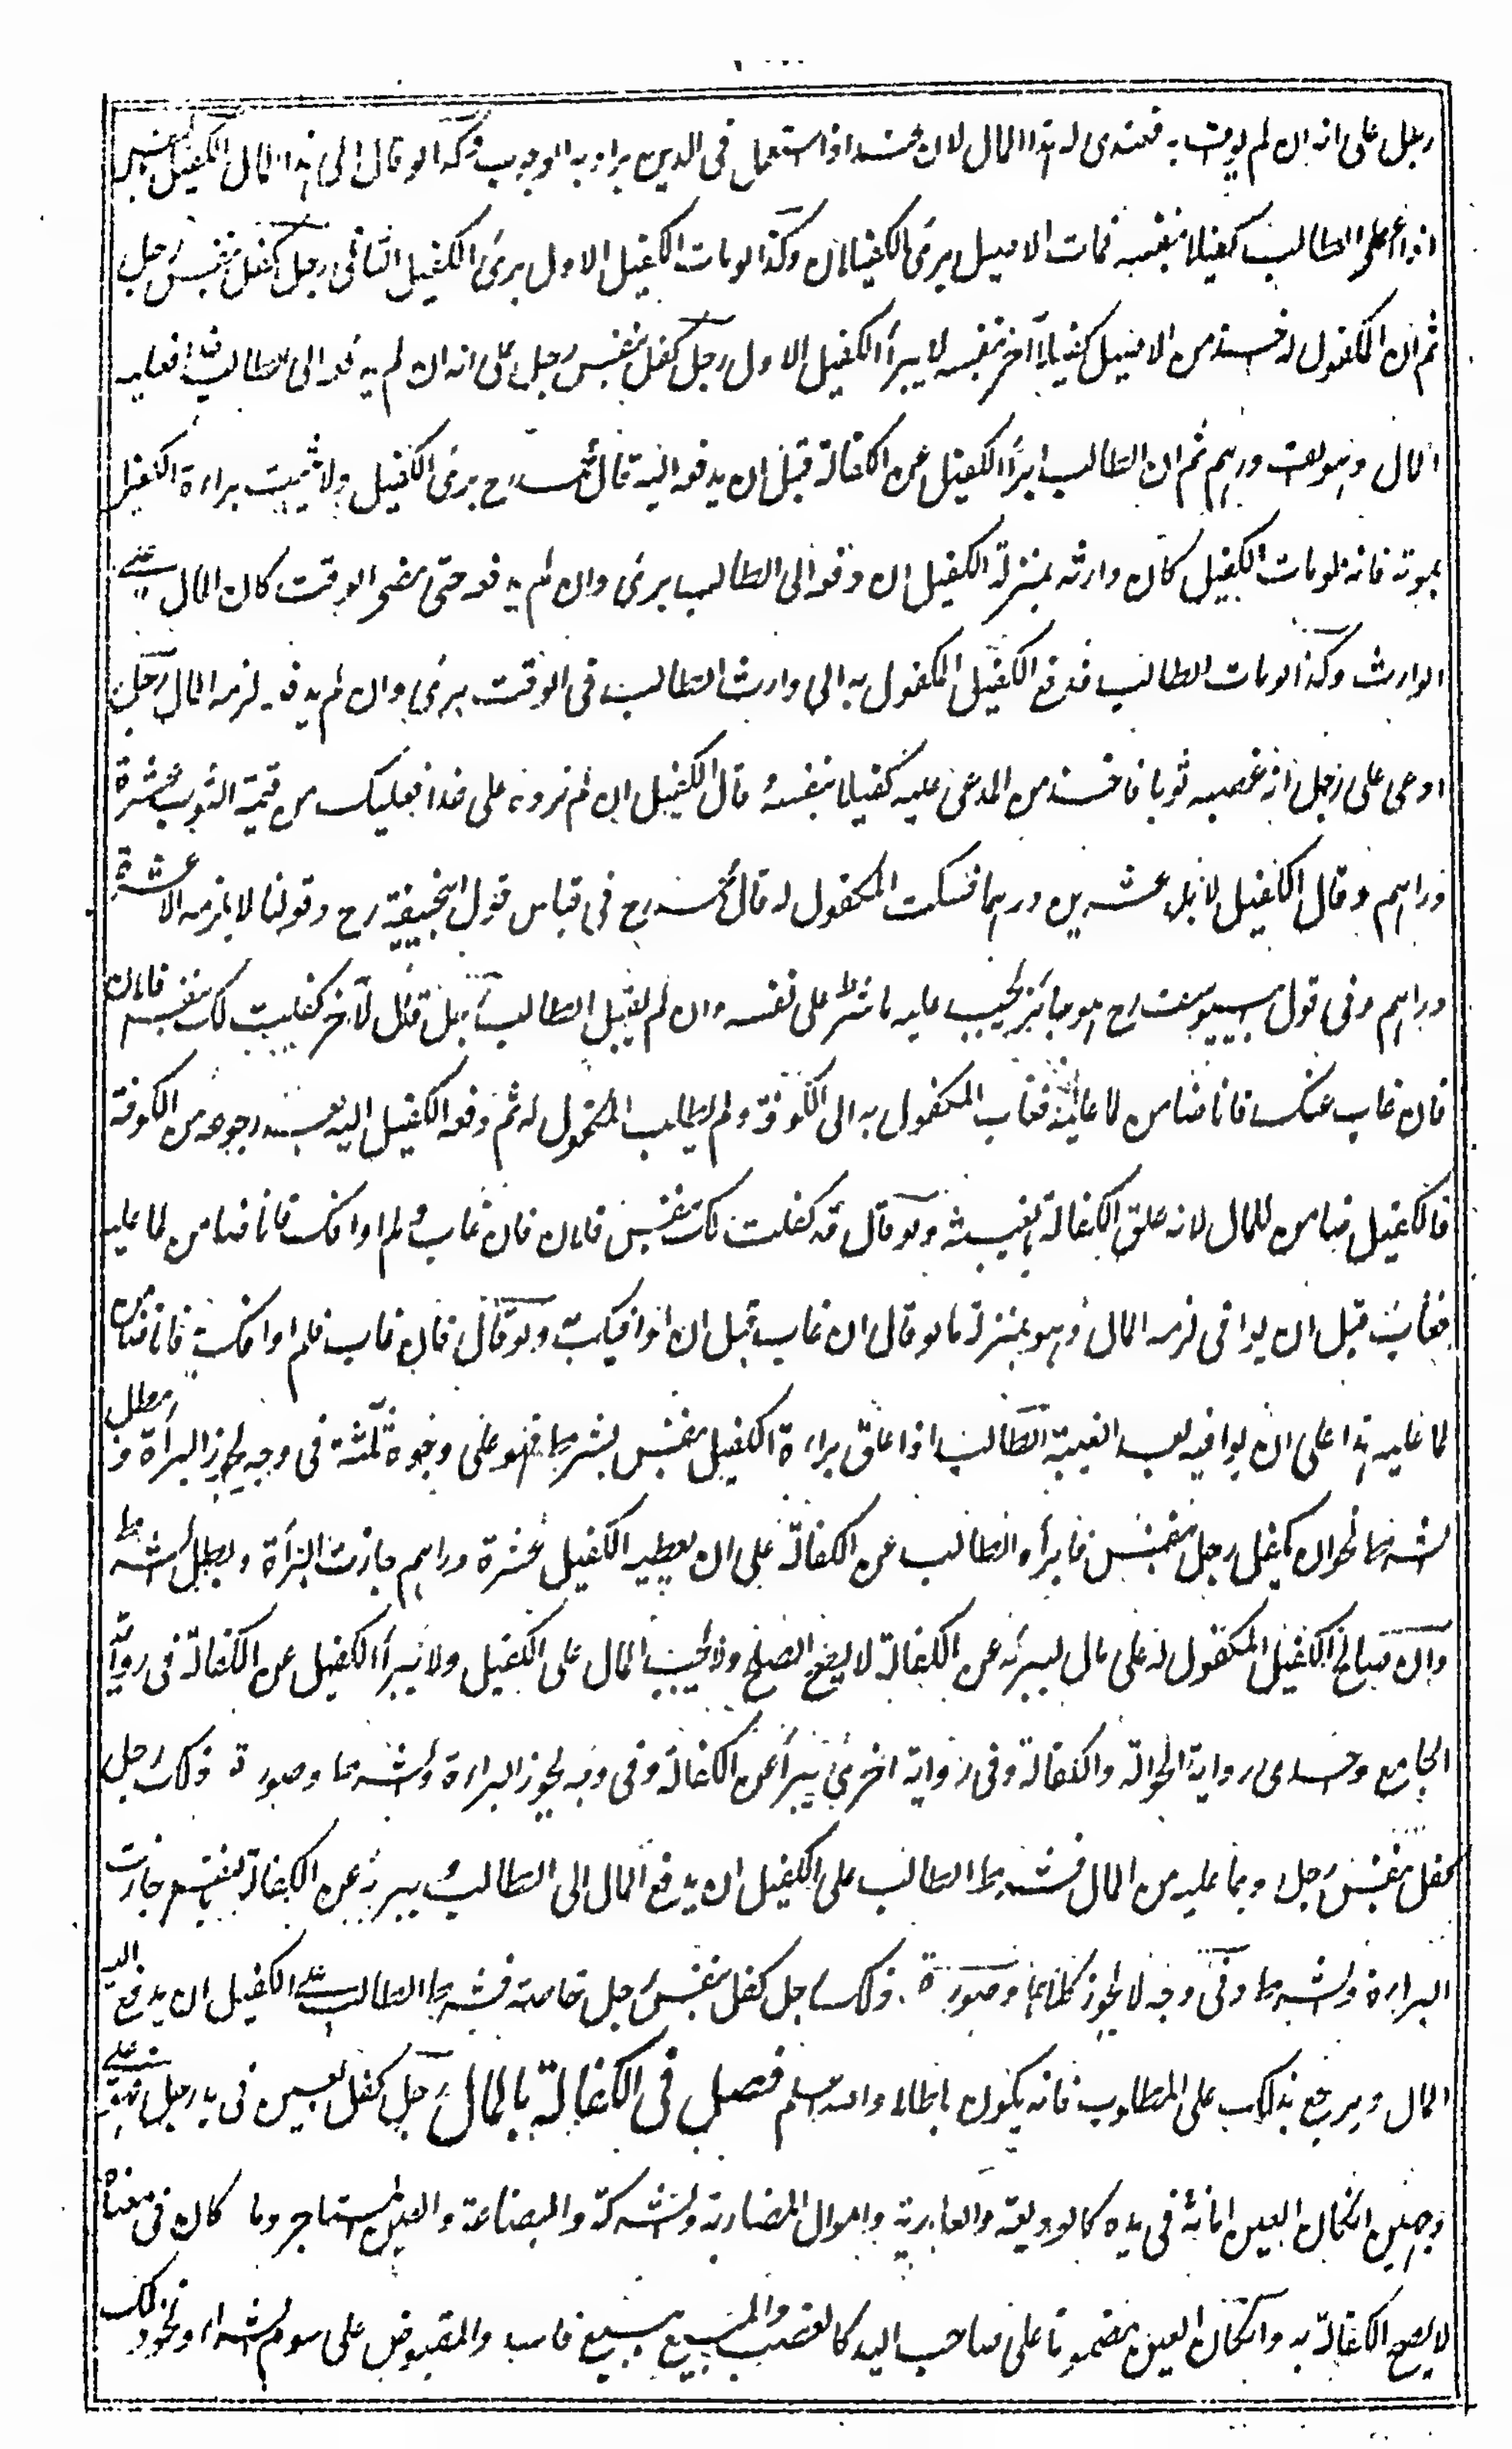 رجل على انه ان لم يوف به فعندى له هذا المال لان عند اذا استعمل فى الدين يراد به الوجوب وكذا لو قال الى هذا المال الكفيل بالنفس
اذا اعطى الطالب كفيلا بنفسه فمات الاصيل برئ الكفيلان وكذا لو مات الكفيل الاول برئ الكفيل الثانى رجل كفل بنفس رجل
ثم ان المكفول له اخذ من الاصيل كفيلا آخر بنفسه لا يبرأ الكفيل الاول رجل كفل بنفس رجل على انه ان لم يدفعه الى الطالب غدا فعليه
المال وهو الف درهم ثم ان الطالب ابرأ الكفيل عن الكفالة قبل ان يدفعه اليه قال محمد رح برئ الكفيل ولا تثبت براءة الكفيل
بموته فانه لو مات الكفيل كان وارثه بمنزلة الكفيل ان دفعه الى الطالب برئ وان لم يدفعه حتى مضى الوقت كان المال على
الوارث وكذا لو مات الطالب فدفع الكفيل المكفول به الى وارث الطالب فى الوقت برئ وان لم يدفعه لزمه المال رجل
ادعى على رجل انه غصبه ثوبا فاخذ من المدعى عليه كفيلا بنفسه قال الكفيل ان لم نرده على غدا فعليك من قيمة الثوب عشرة
دراهم وقال الكفيل لا بل عشرين درهما فسكت المكفول له قال محمد رح فى قياس قول ابيحنيفة رح وقولنا لا يلزمه الا عشرة
دراهم وفى قول ابييوسف رح هو جائز يجب عليه ما شرط على نفسه وان لم يقبل الطالب رجل قال لآخر كفلت لك بنفس فلان
فان غاب عنك فانا ضامن لما عليه فغاب المكفول به الى الكوفة ولم يطلب المكفول له ثم دفعه الكفيل اليه بعد رجوعه من الكوفة
فالكفيل ضامن للمال لانه علق الكفالة بالغيبة ولو قال قد كفلت لك بنفس فلان فان غاب ولم اوافك فانا ضامن لما عليه
فغاب قبل ان يوافى لزمه المال وهو بمنزلة ما لو قال ان غاب قبل ان اوافيك به ولو قال فان غاب فلم اوافك به فانا ضامن
لما عليه هذا على ان يوافيه بعد الغيبة الطالب اذا علق براءة الكفيل بنفس بشرط فهو على وجوه ثلثة فى وجه يجوز البرأة ويبطل
الشرط نحو ان كفل رجل بنفس فابرأه الطالب عن الكفالة على ان يعطيه الكفيل عشرة دراهم جازت البرأة وبطل الشرط
وان صالح الكفيل المكفول له على مال ليبرئه عن الكفالة لا يصح الصلح ولا يجب المال على الكفيل ولا يبرأ الكفيل عن الكفالة فى رواية
الجامع واحدى رواية الحوالة والكفالة وفى رواية اخرى يبرأ عن الكفالة وفى وجه يجوز البراءة والشرط وصورة ذلك رجل
كفل بنفس رجل وبما عليه من المال فشرط الطالب على الكفيل ان يدفع المال الى الطالب ويبرئه عن الكفالة بالنفس جازت
البراءة والشرط وفى وجه لا يجوز كلاهما وصورة ذلك رجل كفل بنفس رجل خاصة فشرط الطالب على الكفيل ان يدفع اليه
المال ويرجع بذلك على المطلوب فانه يكون باطلا والله اعلم فصل فى الكفالة بالمال رجل كفل بعين فى يد رجل فهى على
وجهين انكان العين امانة فى يده كالوديعة والعارية واموال المضاربة والشركة والبضاعة والعين المستاجر وما كان فى معناه
لا يصح الكفالة به وانكان العين مضمونا على صاحب اليد كالغصب والمبيع ببيع فاسد والمقبوض على سوم الشراء ونحو ذلك